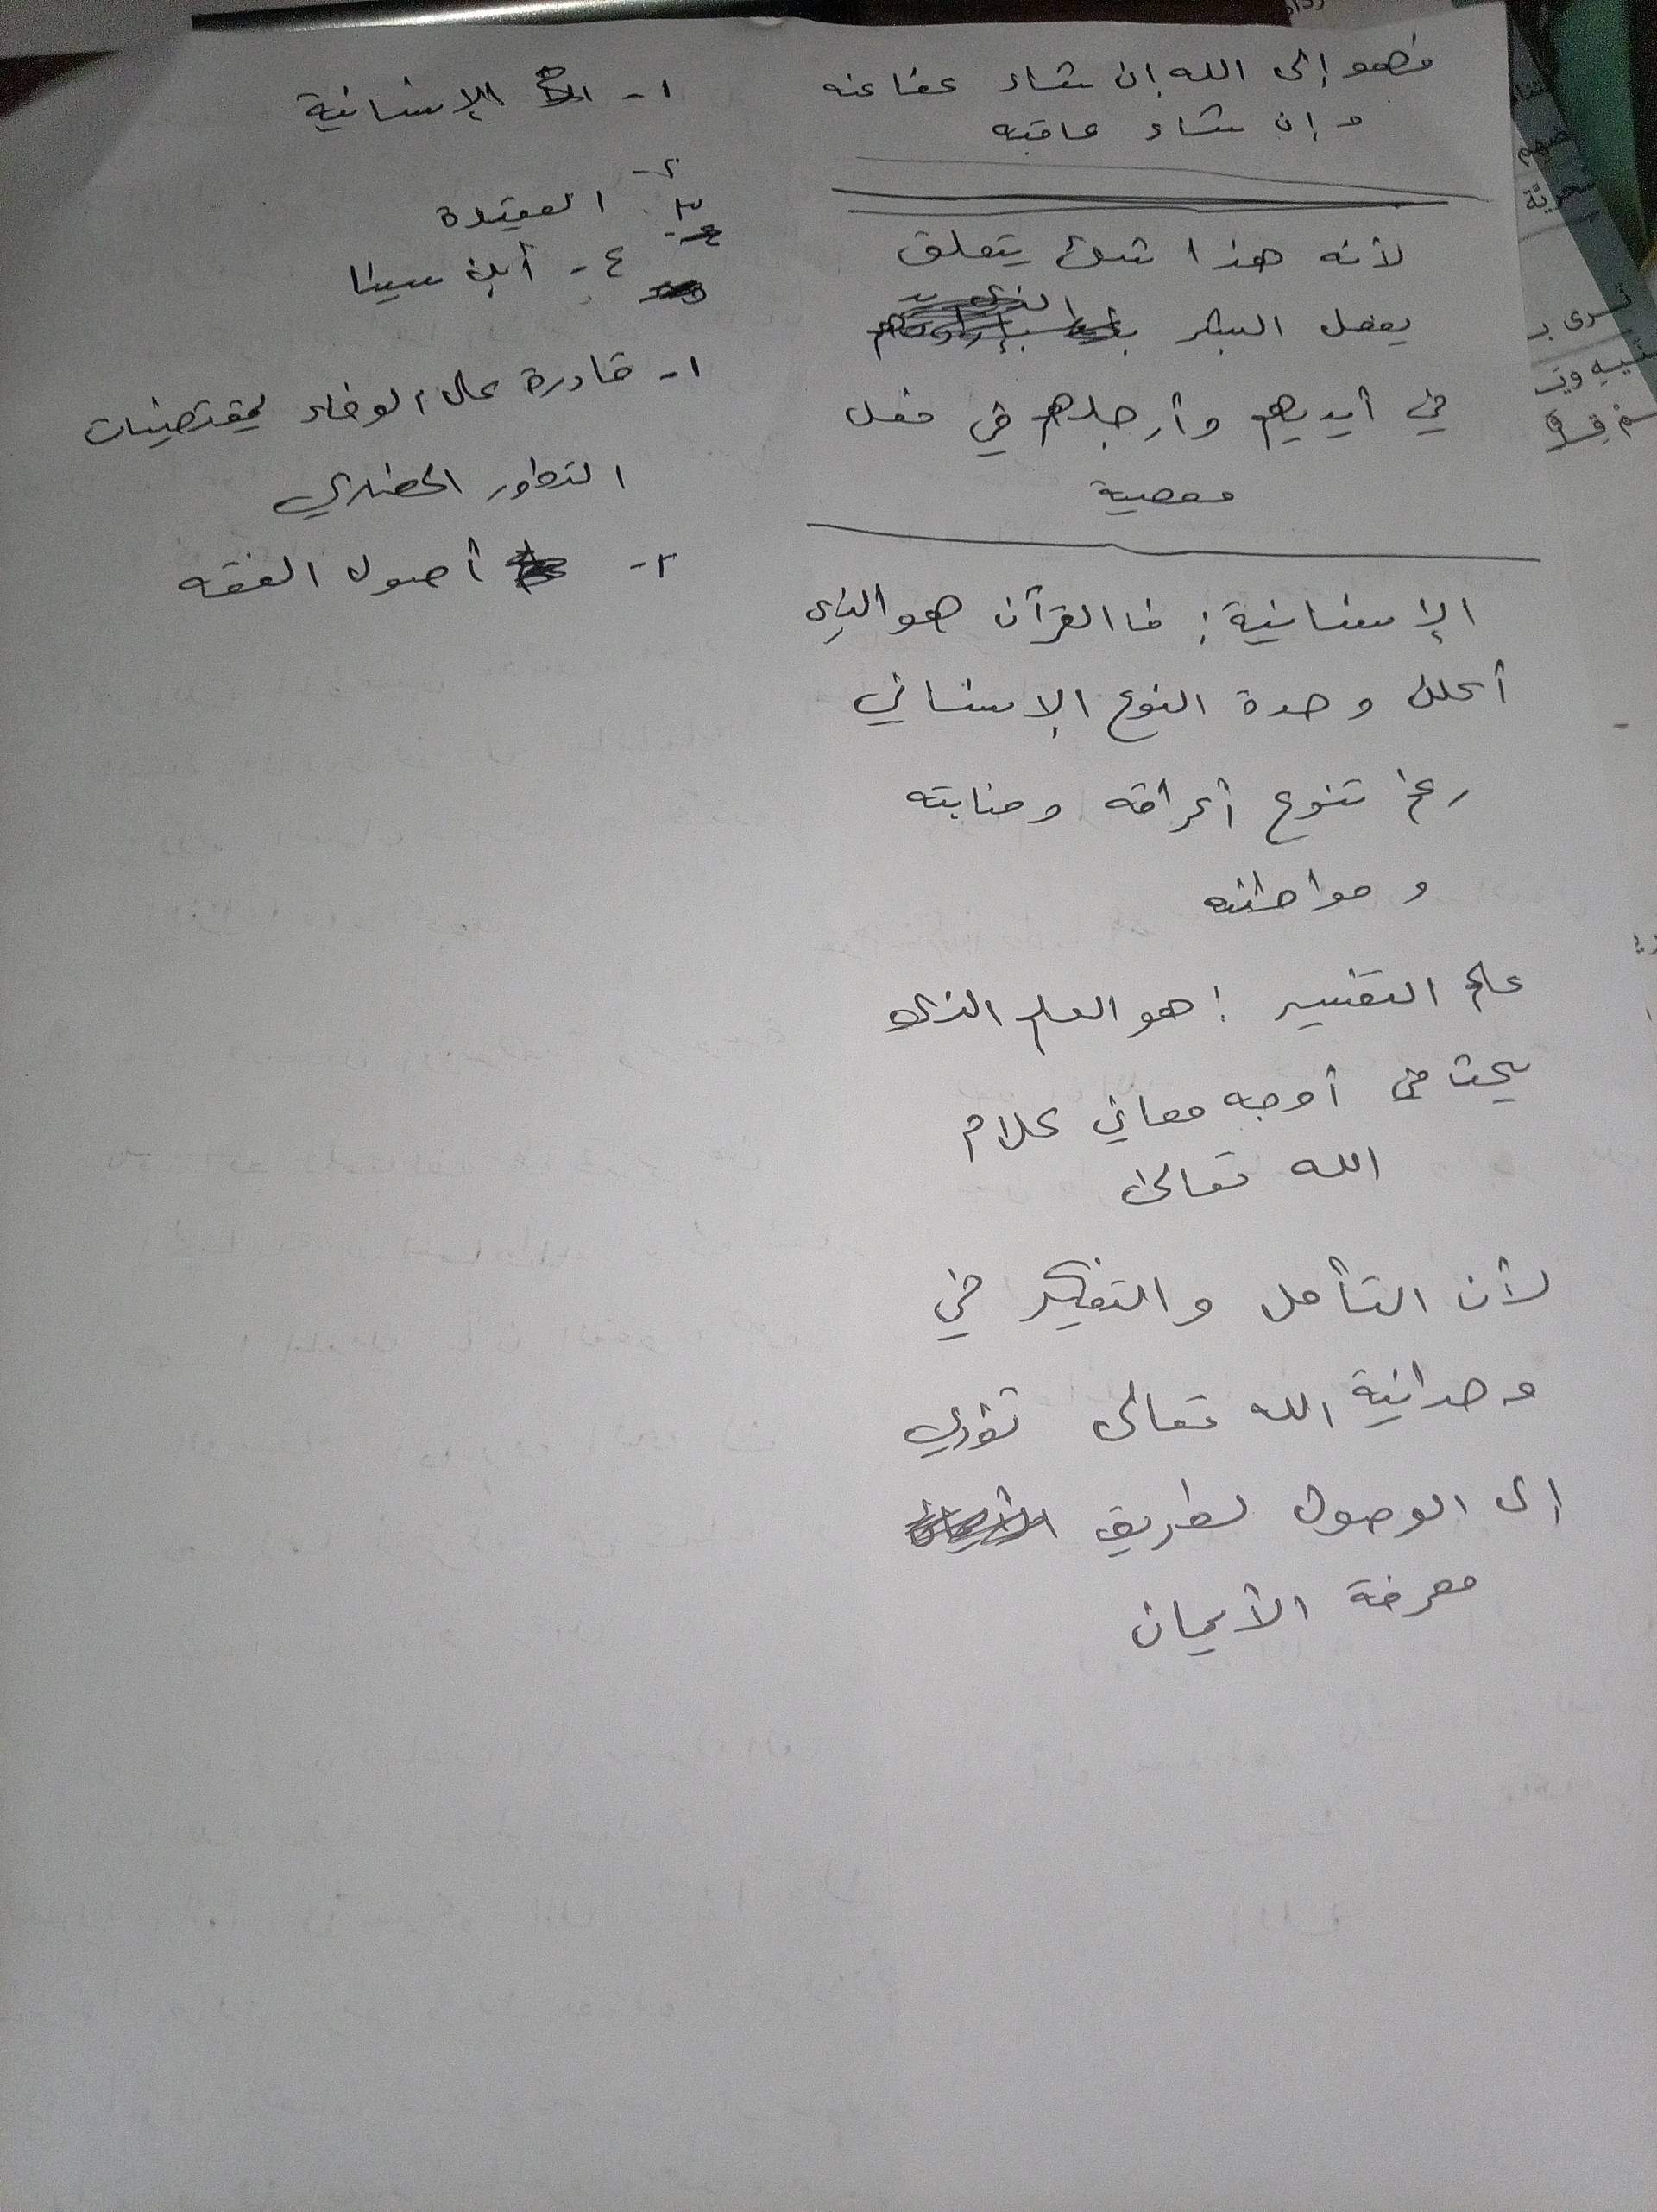 فهو إلى الله إن شاء عفا عنه
و إن شاء عاقبه
لأنه هذا شيء يتعلق
بفعل البشر
في أيديهم وأرجلهم في فعل
معصية
الإنسانية: فا القرآن هو الذي
أعلن وحدة النوع الإنساني
رغم تنوع أعراقه ومنابته
و مواطنه
علم التفسير: هو العلم الذي
يبحث في أوجه معاني كلام
الله تعالى
لأن التأمل والتفكير في
وحدانية الله تعالى تؤدي
إلى الوصول لطريق
معرفة الأيمان
١- الإنسانية
٢-
٣- العقيدة
٤- أبن سينا
١- قادرة على الوفاء بمقتضيات
التطور الحضاري
٢- أصول الفقه